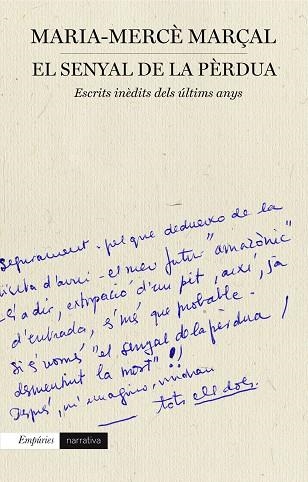 MARIA-MERCÈ MARÇAL
EL SENYAL DE LA PÈRDUA
Escrits inèdits dels últims anys
segurament - pel que dedueixo de la
visita d'avui - el meu futur "amazònic"
- és a dir, extirpació d'un pit, així, ja
d'entrada, és més que probable.
Si és només "el senyal de la pèrdua /
desmentint la mort"!!
Després, m'imagino, vindran
tots els dols.
Empúries
narrativa